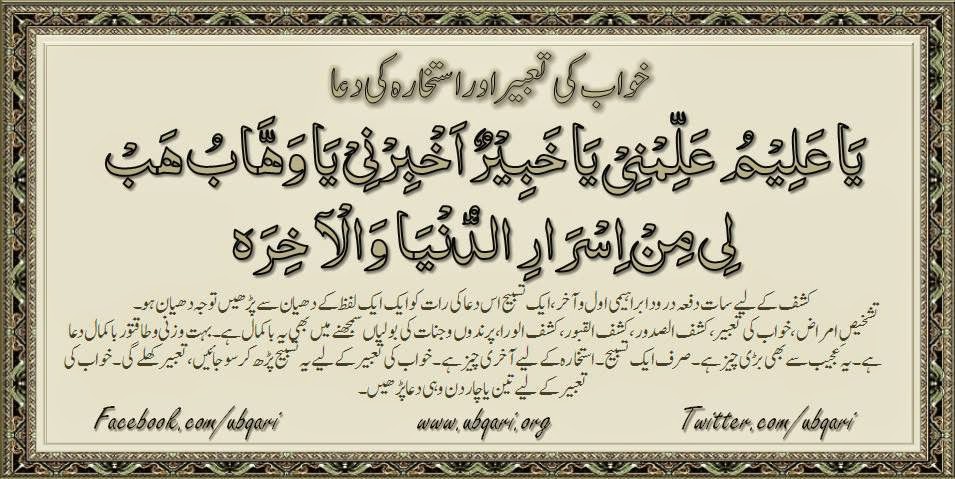 خواب کی تعبیر اور استخارہ کی دعا
يَا عَلِيْمُ عَلِّمْنِيْ يَا خَبِيْرٌ اَخْبِرْنِيْ يَا وَهَّابُ هَبْ
لِي مِنْ اِسْرَارِ الدُّنْيَا وَالْآخِرَه
کشف کے لیے سات دفعہ درود ابراہیمی اول و آخر، ایک تسبیح اس دعا کی رات کو ایک ایک لفظ کے دھیان سے پڑھیں توجہ دھیان ہو۔
تشخیص امراض، خواب کی تعبیر، کشف الصدور، کشف القبور، کشف الورا، پرندوں و جنات کی بولیاں سمجھنے میں بھی یہ باکمال ہے۔ بہت وزنی و طاقتور باکمال دعا
ہے۔ یہ عجیب سے بھی بڑی چیز ہے۔ صرف ایک تسبیح۔ استخارہ کے لیے آخری چیز ہے۔ خواب کی تعبیر کے لیے یہ تسبیح پڑھ کر سو جائیں، تعبیر کھلے گی۔ خواب کی
تعبیر کے لیے تین یا چار دن وہی دعا پڑھیں۔
Facebook.com/ubqari www.ubqari.org Twitter.com/ubqari